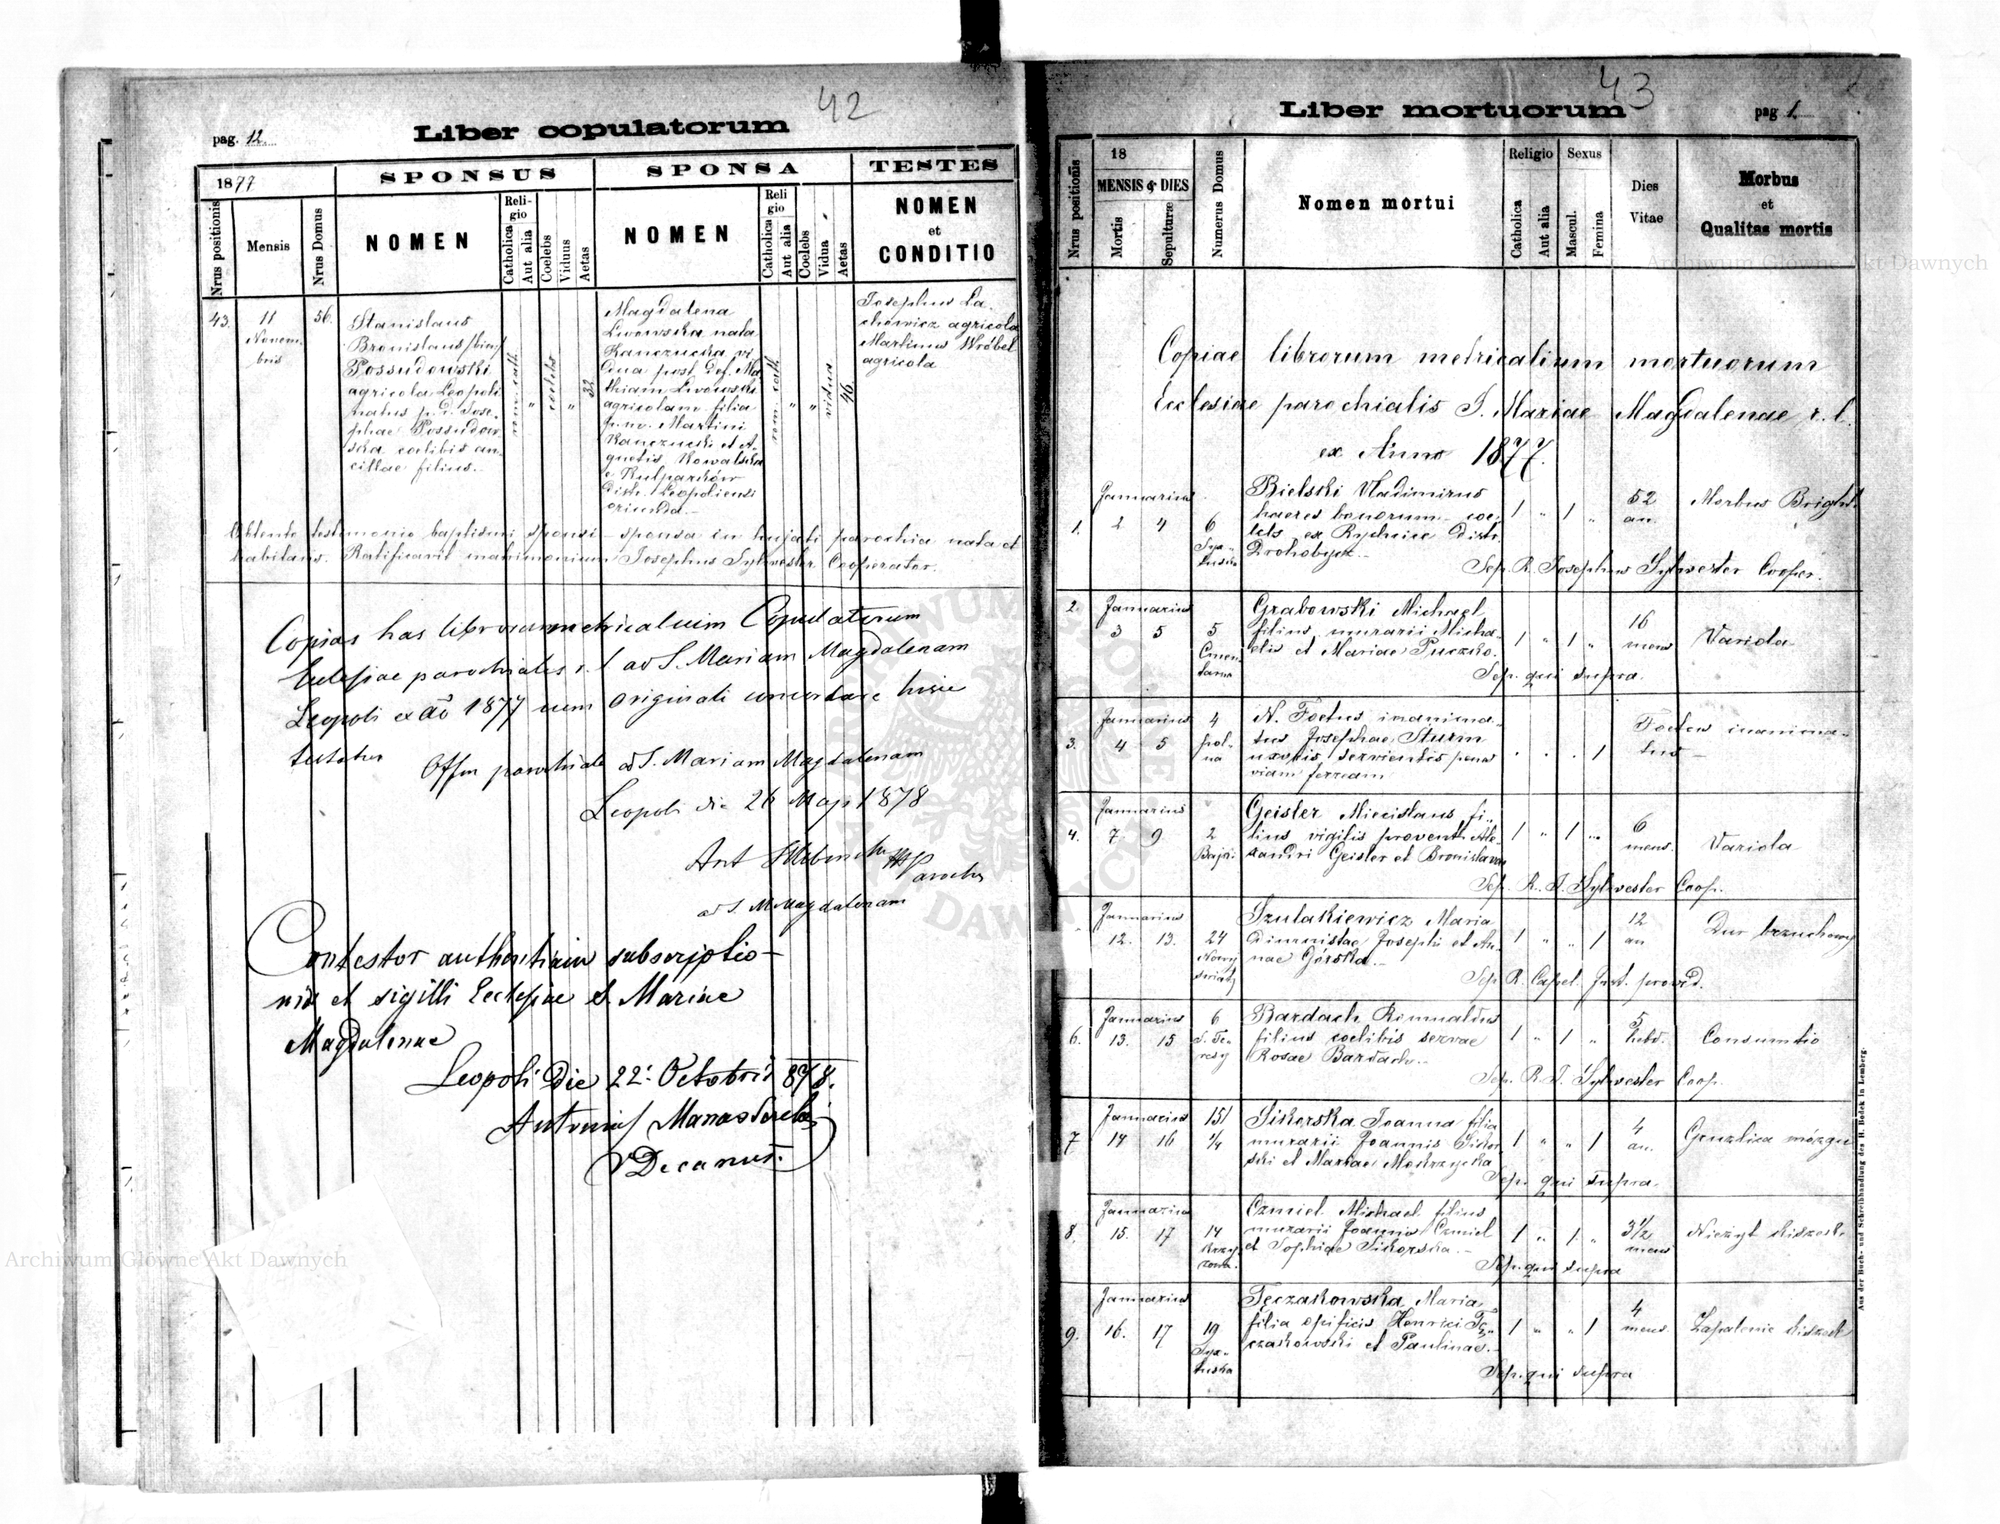 42
pag. 12.
Liber copulatorum
1877
SPONSUS
SPONSA
TESTES
Nrus positionis
Mensis
Nrus Domus
NOMEN
Religio
Catholica
Aut alia
Coelebs
Viduus
Aetas
NOMEN
Religio
Catholica
Aut alia
Coelebs
Vidua
Aetas
NOMEN
et
CONDITIO
43.
11
Novem-
bris
56.
Stanislaus
Bronislaus /bin/
Possudowski
agricola Leopoli
natus p. d. Jose-
phae Possudow-
ska coelibis an-
cillae filius.
rom. cath.
"
coelebs
"
32
Magdalena
Lwowska nata
Kanczucka vi-
dua post def. Ma-
thiam Lwowski
agricolam filia
Martini
Kanczucki et A-
gnetis Kowalska
e Kulparków
distr. Leopoliensi
oriunda.
rom. cath.
"
"
vidua
46.
Josephus La-
chowicz agricola
Martinus Wróbel
agricola
Obtento testimonio baptismi sponsi - sponsa in hujati parochia nata et
habitans. Ratificavit matrimonium Josephus Sylwester Cooperator.
Copias has librorum metricalium Copulatorum
Ecclesiae parochialis r. l. ad S. Mariam Magdalenam
Leopoli ex ao 1877 cum originali concordare hisce
testatur
Offm parochiale ad S. Mariam Magdalenam
Leopoli die 26 Maji 1878
Ant
Parochus
ad S. M Magdalenam
Contestor authentiam subscriptio-
nis et sigilli Ecclesiae S. Mariae
Magdalenae
Leopoli die 22. Octobris 878.
Antonius Manasterski
VDecanus.
43
Liber mortuorum
pag 1.
Nrus positionis
18
MENSIS & DIES
Mortis
Sepulturæ
Numerus Domus
Nomen mortui
Religio
Catholica
Aut alia
Sexus
Mascul.
Femina
Dies
Vitae
Morbus
et
Qualitas mortis
Copiae librorum metricalium mortuorum
Ecclesiae parochialis S. Mariae Magdalenae r. l.
ex Anno 1877.
1.
Januarius
2 4
6
Syx-
tuska
Bielski Vladimirus
haeres bonorum coe-
lebs ex Rychcice Distr.
Drohobycz.
1 " 1 "
52
an.
Morbus Brighti
Sep. R. Josephus Sylwester Cooper.
2.
Januarius
3 5
5
Cmen-
tarna
Grabowski Michael
filius murarii Micha-
elis et Mariae Puczko.
1 " 1 "
16
mens
Variola
Sep. qui supra.
3.
Januarius
4 5
4
pol-
na
N. Foetus inanima-
tus Josephae Sturm
uxoris servientis penes
viam ferream
. . . 1
Foetus inanima-
tus
4.
Januarius
7 9
2
Bajki
Geisler Miecislaus fi-
lius vigilis provent. Ale-
xandri Geisler et Bronislavae
1 " 1 "
6
mens.
Variola
Sep. R. J. Sylwester Coop.
Januarius
12. 13.
24
Nowy
świat
Szulakiewicz Maria
diurnistae Josephi et An-
nae Górska.
1 " " 1
12
an
Dur brzuchowy
Sep. R. Capel. Inst. provid.
6.
Januarius
13. 15
6
S. Te-
resy
Bardach Romualdus
filius coelibis servae
Rosae Bardach.
1 " 1 "
5
hebd.
Consumtio
Sep. R. J. Sylwester Coop.
7
Januarius
14 16
151
4/4
Sikorska Joanna filia
murarii Joannis Sikor-
ski et Mariae Mokrzycka
1 " " 1
4
an.
Gruzlica mózgu
Sep. qui supra.
8.
Januarius
15. 17
14
Krzy-
zowa.
Czmiel Michael filius
murarii Joannis Czmiel
et Sophiae Sikorska.
1 " 1 "
3 1/2
mens
Nieżyt kiszek
Sep. qui supra
9.
Januarius
16. 17
19
Syx-
tuska
Tęczakowska Maria
filia opificis Henrici Tę-
czakowski et Paulinae.
1 " " 1
4
mens
Zapalenie kiszek
Sep. qui supra
Aus der Buch- und Schreibhandlung des H. Bodek in Lemberg.
Archiwum Główne Akt Dawnych
Archiwum Główne Akt Dawnych
ARCHIWUM GŁÓWNE AKT DAWNYCH